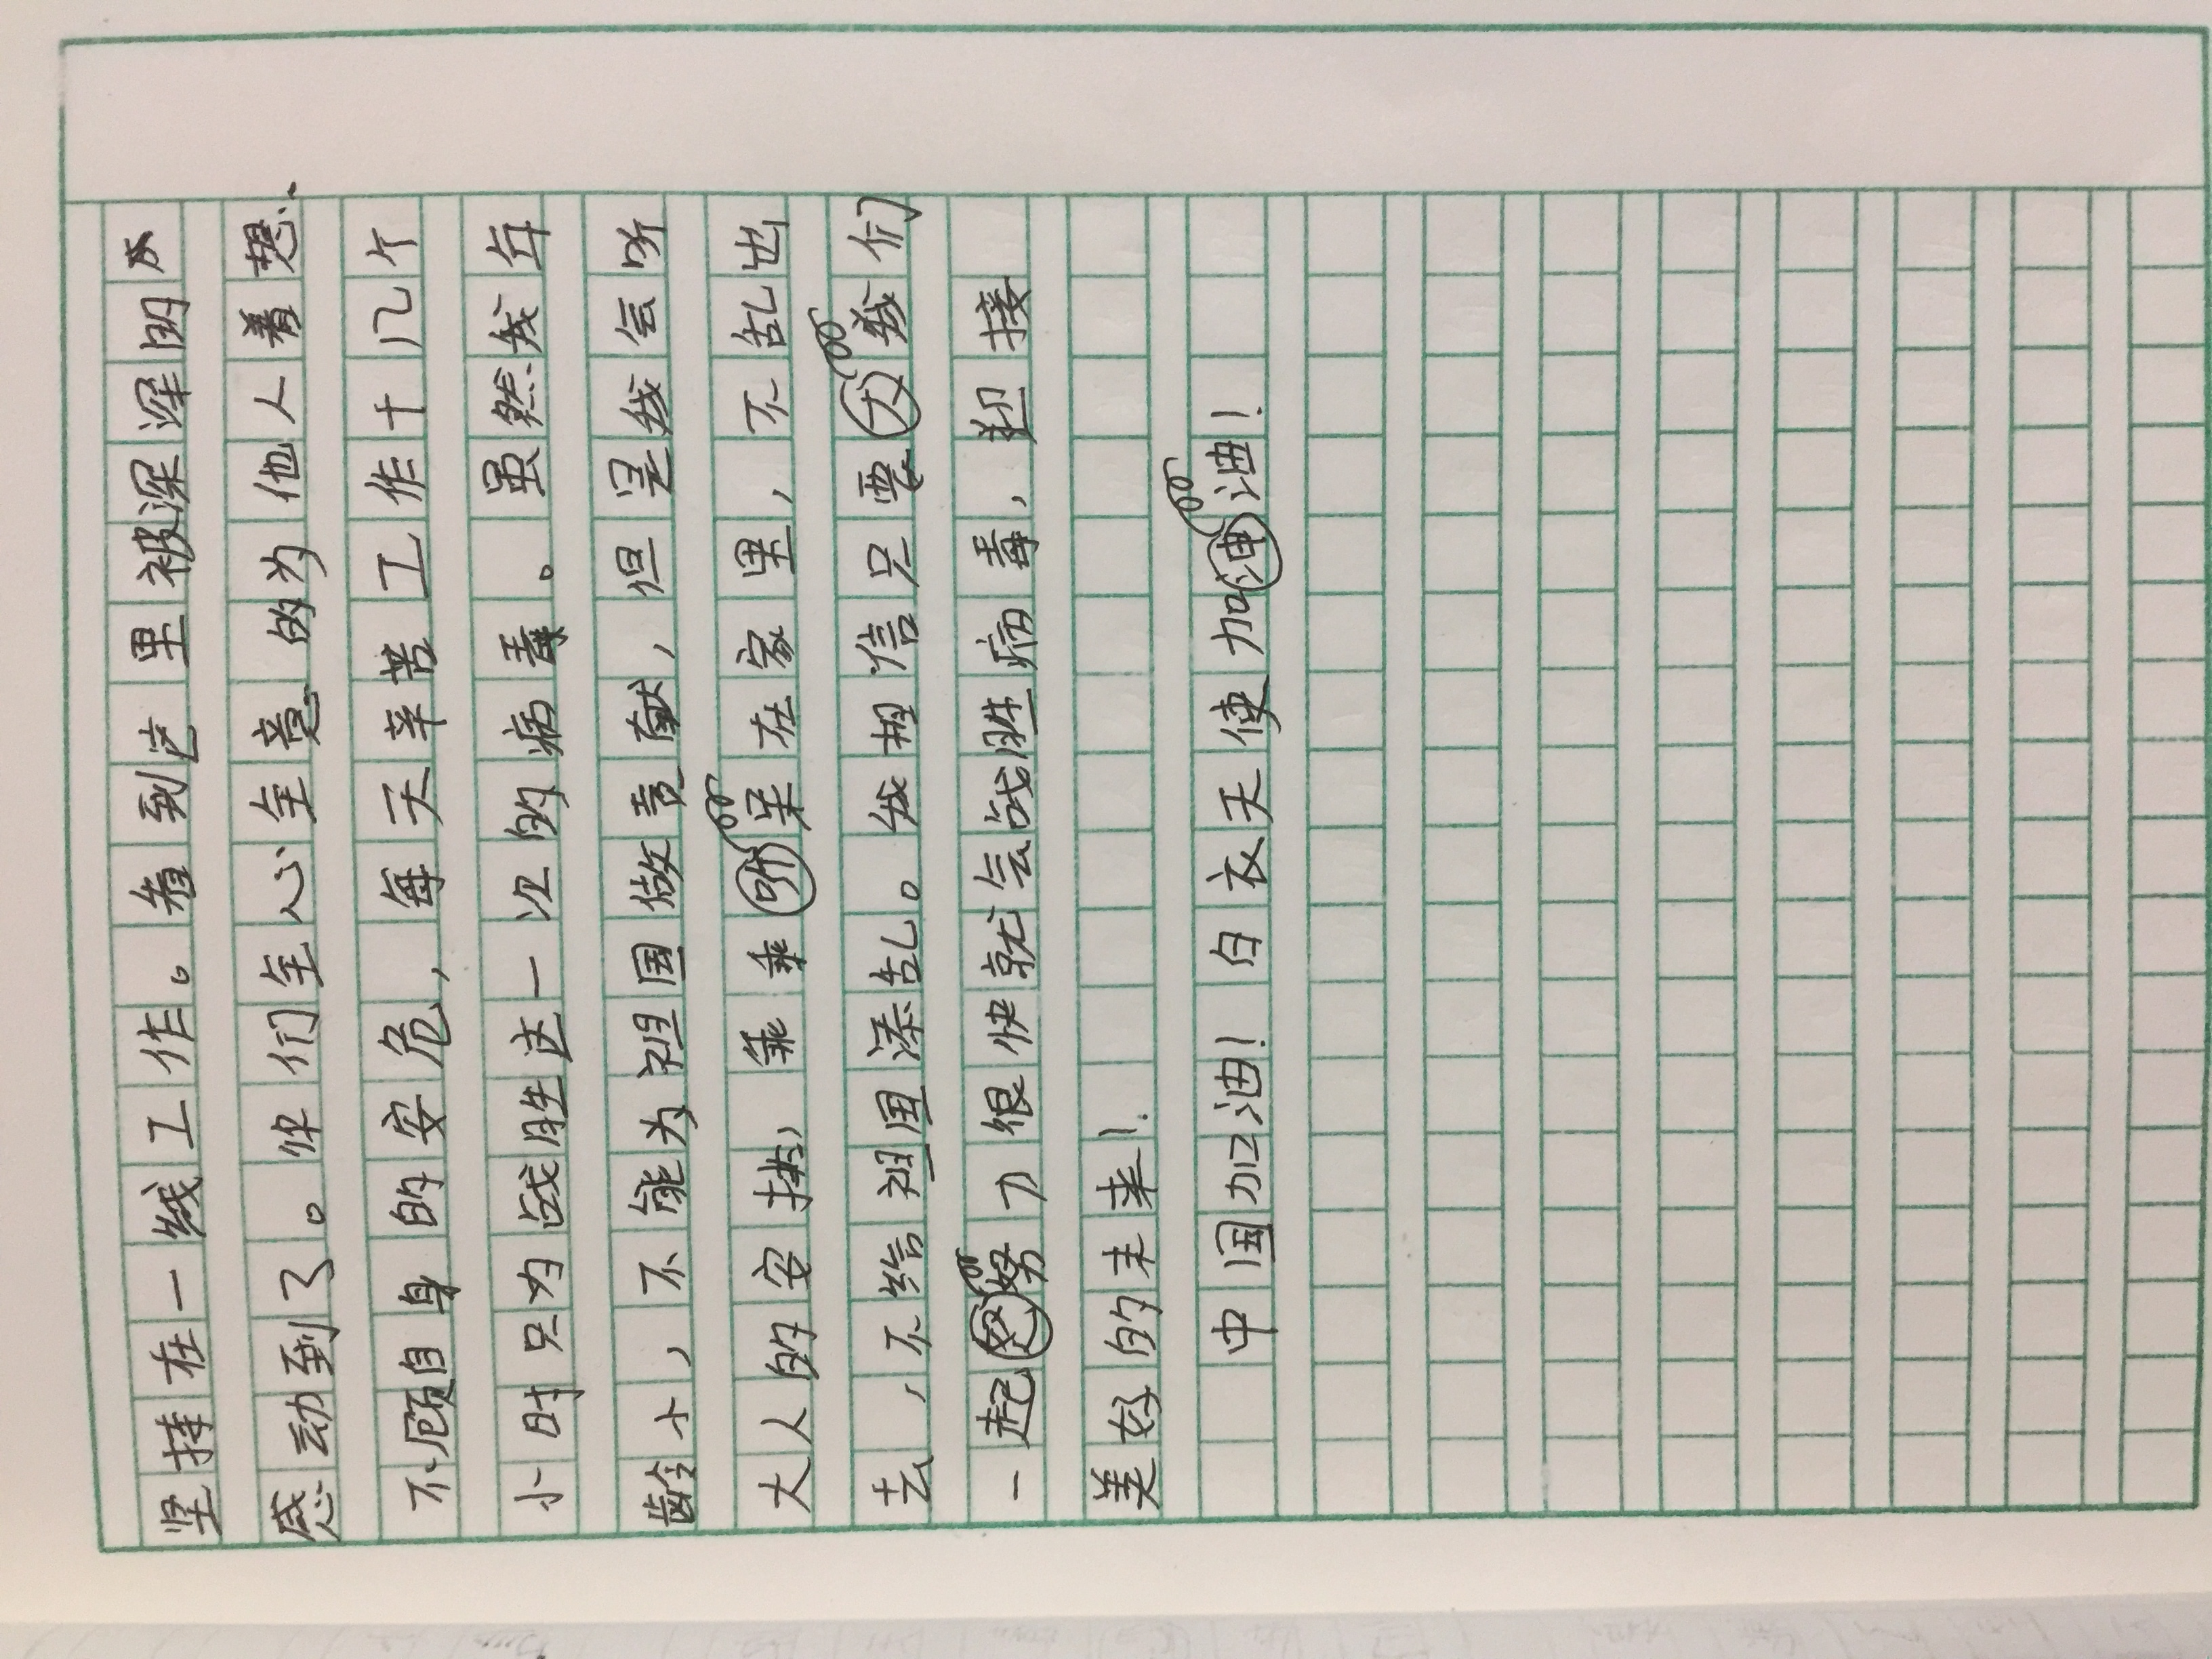 坚持在一线工作。看到这里被深深的
感动到了。你们全心全意的为他人着想，
不顾自身的安危，每天辛苦工作十几个
小时只为战胜这一次的病毒。虽然我年
龄小，不能为祖国做贡献，但是我会听
大人的安排，乖乖呆在家里，不乱出
去，不给祖国添乱。我相信只要我们
一起努力很快就会战胜病毒，迎接
美好的未来！
中国加油！白衣天使加油！